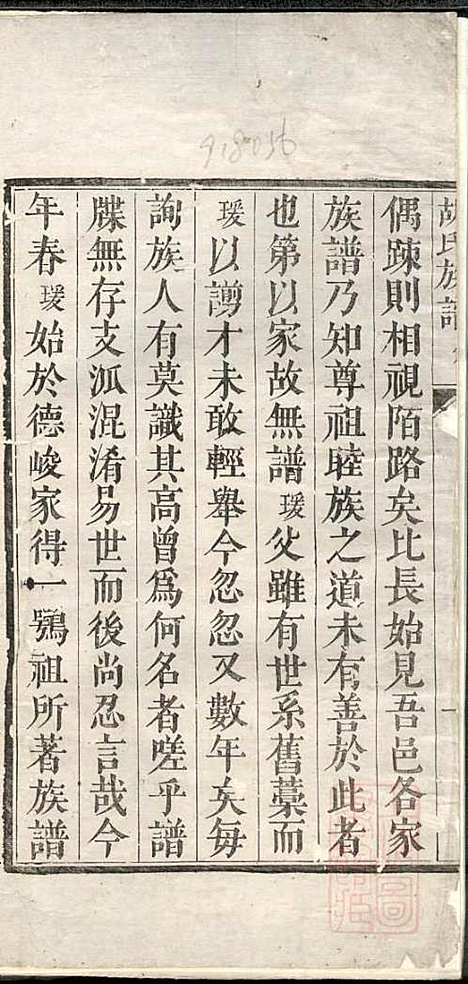 918056
胡氏族譜
偶踈則相視陌路矣比長始見吾邑各家
族譜乃知尊祖睦族之道未有善於此者
也第以家故無譜瑗父雖有世系舊藁而
瑗以謭才未敢輕舉今忽忽又數年矣每
詢族人有莫識其高曾爲何名者嗟乎譜
牒無存支派混淆易世而後尚忍言哉今
年春瑗始於德峻家得一鶚祖所著族譜